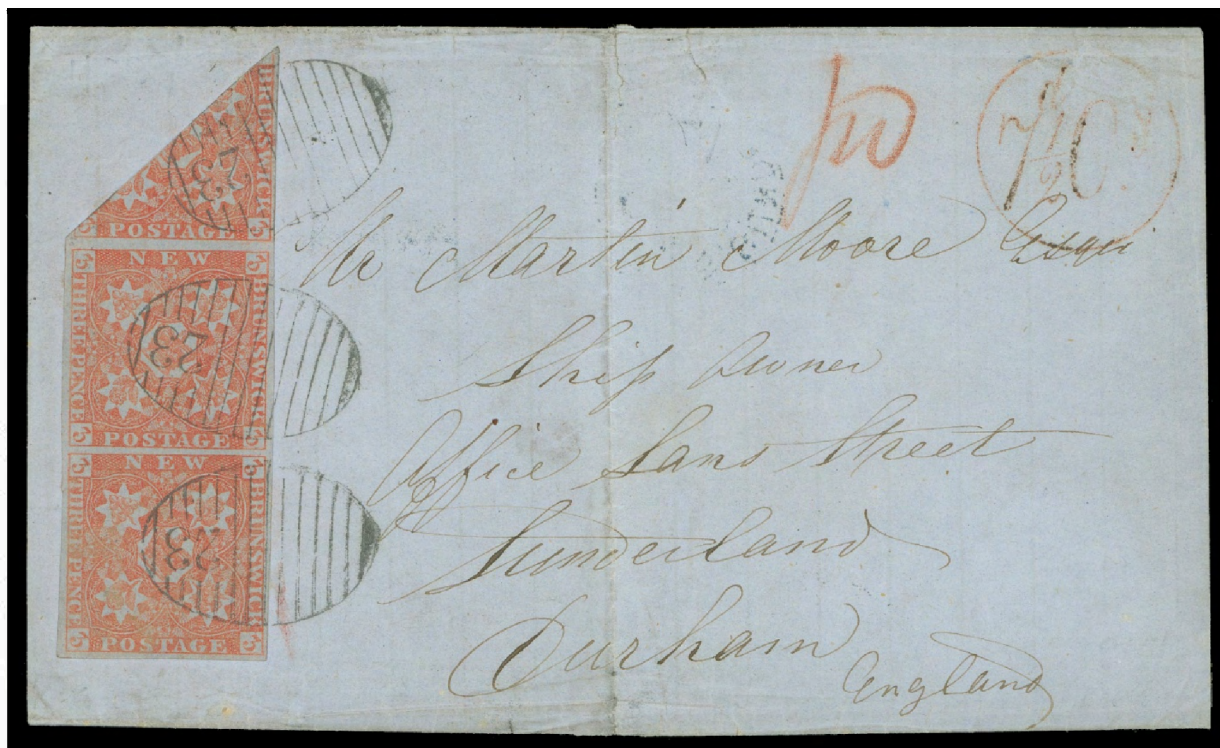 BRUNSWICK
POSTAGE
3 3
23
NEW
THREE PENCE
BRUNSWICK
POSTAGE
3 3
3 3
23
NEW
THREE PENCE
BRUNSWICK
POSTAGE
3 3
3 3
23
Mr Martin Moore Esqr
Ship Owner
Office Sans Street
Sunderland
Durham
England